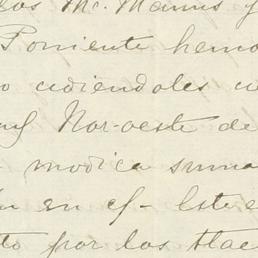 los Mc. Manus y
Poniente hemo
o cediendoles
Nor-oeste de
modica suma
en ef- Este
to por los tlac